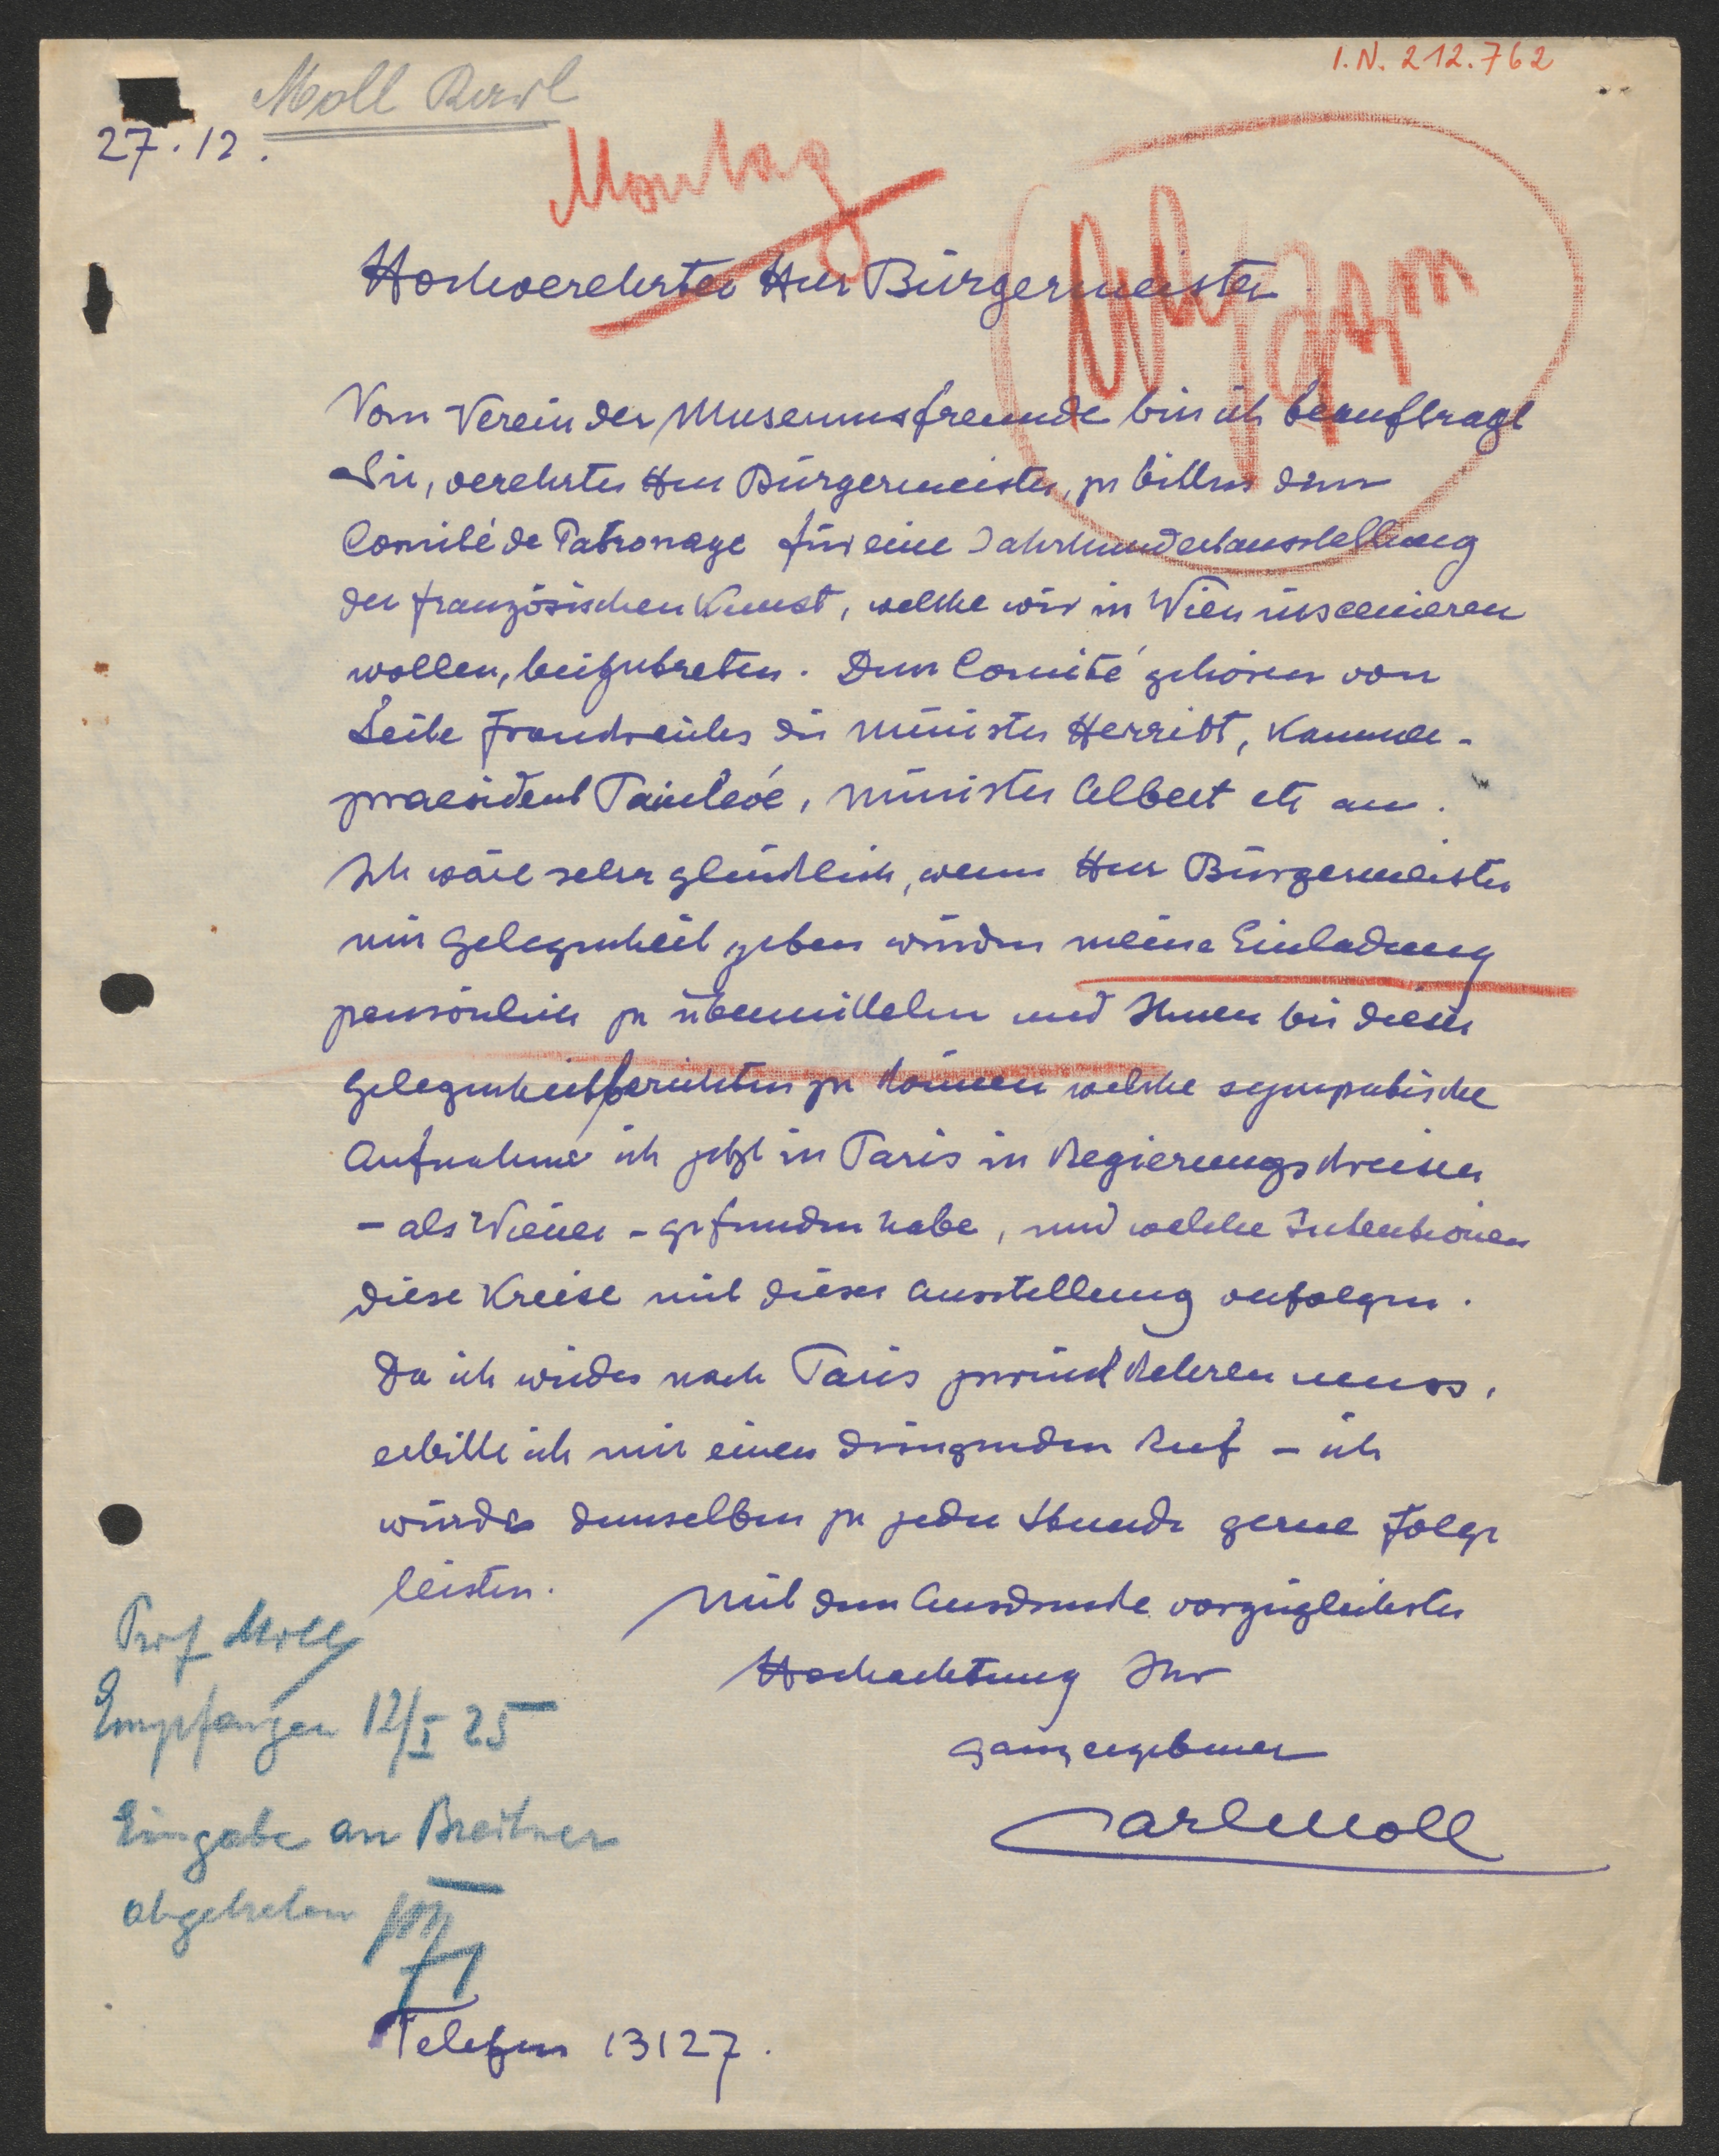 I.N. 212.762
Moll Karl
27.12.
Montag
Hochverehrter Herr Bürgermeister
Vom Verein der Museumsfreunde bin ich beauftragt
Sie, verehrter Herr Bürgermeister, zu bitten dem
Comité de Patronage für eine Jahrhundertausstellung
der französischen Kunst, welche wir in Wien inscenieren
wollen, beizutreten. Dem Comité gehören von
Seite Frankreichs die Minister Herriot, Kammer-
praesident Painlevé, Minister Albert etc an.
Ich wäre sehr glücklich, wenn Herr Bürgermeister
mir Gelegenheit geben würden meine Einladung
persönlich zu übermitteln und Ihnen bei dieser
Gelegenheit berichten zu können welche sympatische
Aufnahme ich jetzt in Paris in Regierungskreisen
- als Wiener - gefunden habe, und welche Intentionen
diese Kreise mit dieser Ausstellung verfolgen.
Da ich wieder nach Paris zurückkehren muss,
erbitte ich mir einen dringenden Ruf - ich
würde demselben zu jeder Stunde gerne Folge
leisten.
Mit dem Ausdrucke vorzüglichster
Hochachtung Ihr
ganz ergebener
Carl Moll
Prof Moll
Empfangen 12/I 25
Eingabe an Breitner
abgetreten
Telefon 13127.